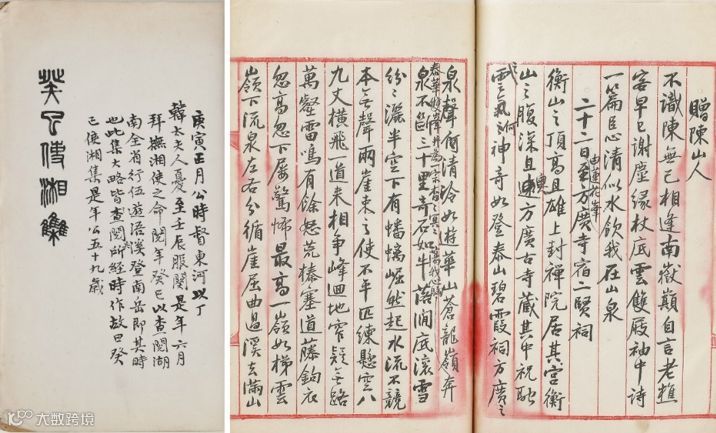 癸巳使湘集
庚寅正月公時督東河以丁
韓太夫人憂至壬辰服闋是年六月
拜撫湘使之命閱年癸巳以查閱湖
南全省行伍遊登南岳即其時
也此集大略皆查閱所經時作故曰癸
巳使湘集是年公五十九歲
贈陳山人
不識陳無己相逢南嶽巔自言老樵
客早已謝塵緣杖底雲雙屐袖中詩
一篇臣心清似水飲我在山泉
二十二日由蓮花峯到方廣寺宿二賢祠
衡山之頂高且雄上封禪院居其宮衡
山之腹深且邃方廣古寺藏其中祝融
雲氣何神奇如登泰山碧霞祠方廣之
泉聲何清泠如遊華山蒼龍嶺奔
泰華雙聲井為一
泉不斷三十里奇石如牛落澗底滾雪
紛紛灑半空下有幡幢崛然起水流不競
本無聲兩崖束之使不平匹練懸空八
九丈橫飛一道來相爭峰迴地窄疑無路
萬壑雷鳴有餘怒荒榛塞道藤鉤衣
忽高忽下屢驚怖最高一嶺如梯雲
嶺下流泉左右分循崖屈曲過溪去滿山
大数跨境